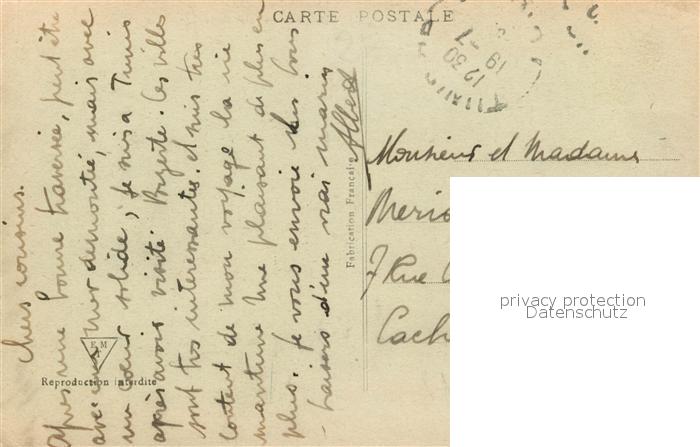 CARTE POSTALE
Chers cousins.
après une bonne traversée, peut être
avec une mer démontée, mais avec
un cœur solide, je suis a Tunis
après avoir visité Bizerte. Ces villes
sont très interessantes. et suis très
content de mon voyage la vie
maritime me plaisant de plus en
plus. je vous envoie des bons
baisers d'un vrai marin
Albert
Fabrication Française
Monsieur et Madame
7 Rue
Cach
12 30
19 - 7
E M
T
Reproduction interdite
privacy protection
Datenschutz